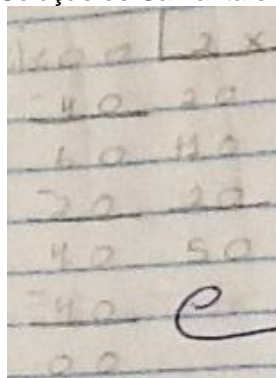 100 2 x
- 40 20
60 +10
- 20 20
40 50
- 40 C
00